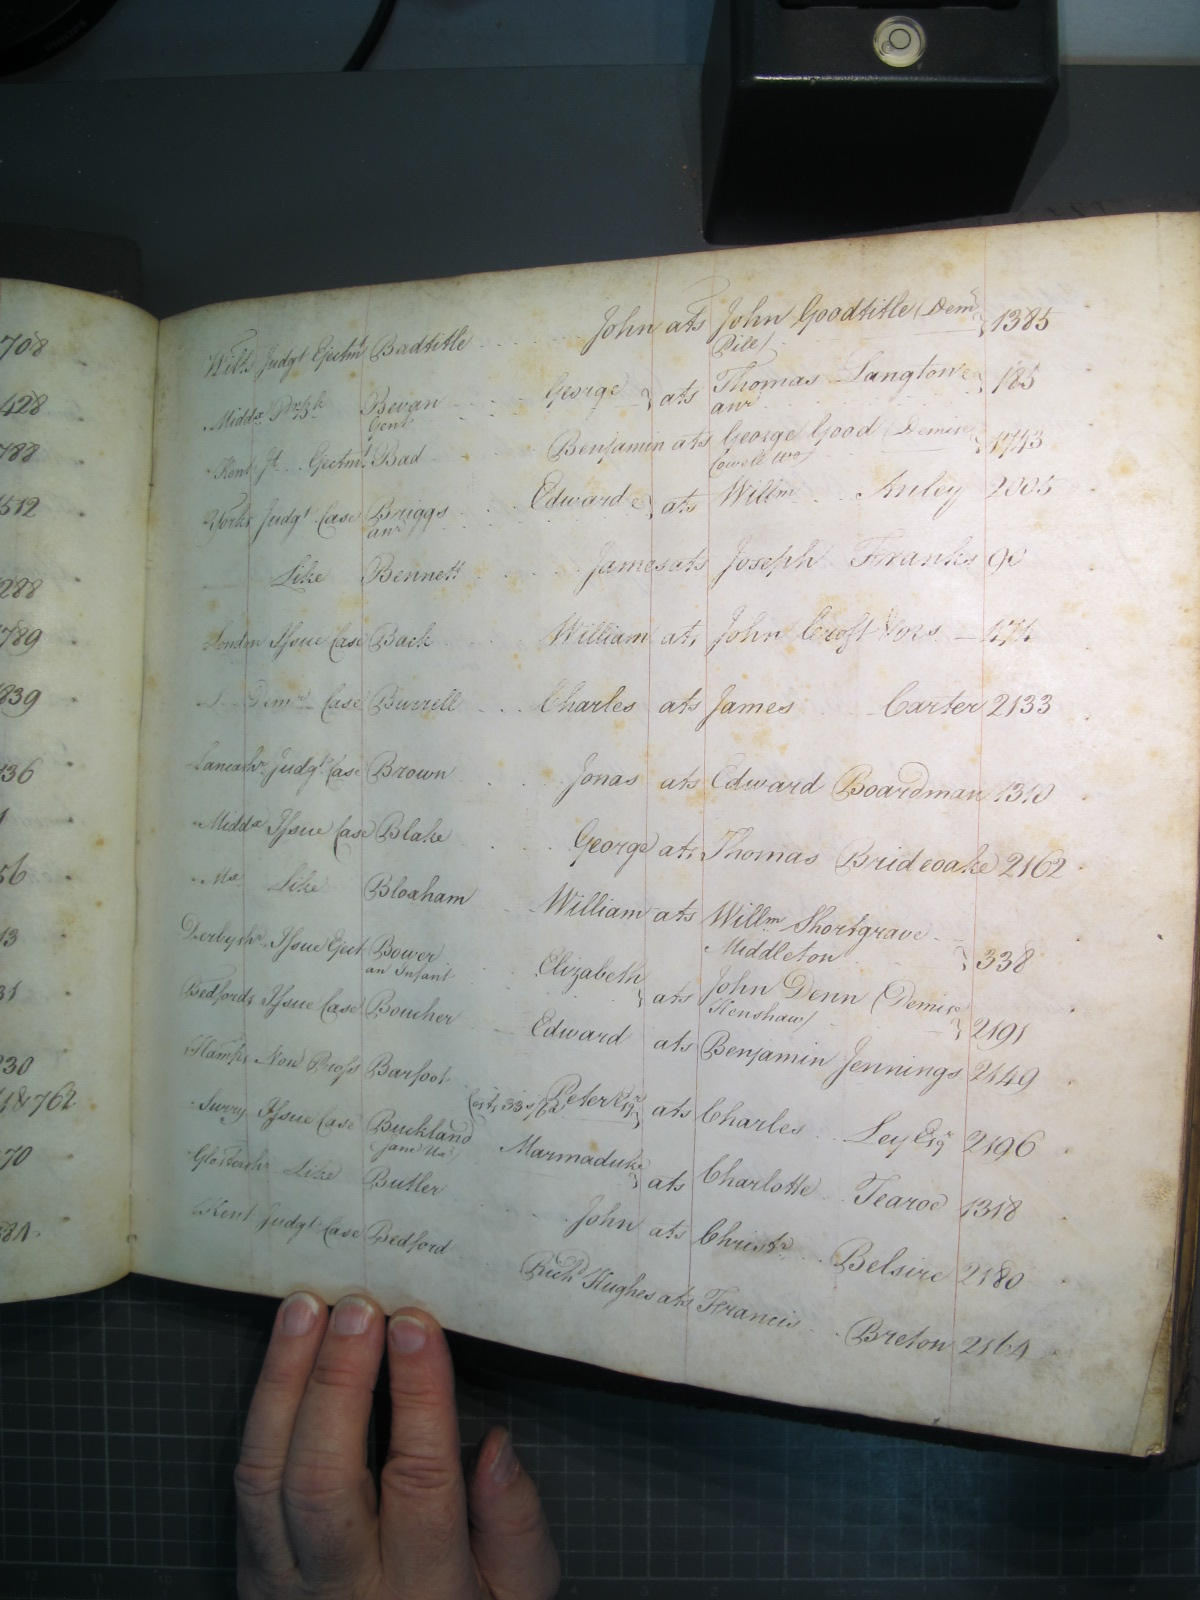 708
428
788
512
288
789
839
136
1
56
13
31
230
18762
70
584
Wilts Judgt Ejectmt Badtitle John ats John Goodtitle (Deme 1385
Pile)
Middx Bevan George ats Thomas Langton 185
Gent anr
Kent Jt Ejectmt Bad Benjamin ats George Good (Demise 1743
Cowell wo)
Yorks Judgt Case Briggs Edward ats Willm 2005
anr
Like Bennett James ats Joseph Franks 90
London Issue Case Back William ats John Croft
Demr Case Burrell Charles ats James Carter 2133
Lancashr Judgt Case Brown Jonas ats Edward Boardman 1310
Middx Issue Case Blake George ats Thomas Brideoake 2162
Mx Like Bloxham William ats Willm Shortgrave
Middleton 338
Derbyshr Issue Eject Bower Elizabeth ats John Denn (Demise
an Infant Henshaw) 2191
Bedfords Issue Case Boucher Edward ats Benjamin Jennings 2149
Hamps Non Pross Barfoot Peter Esqr ats Charles Ley Esqr 2196
Surry Issue Case Buckland Marmaduke ats Charlotte Tearoe 1318
(Jane Ux)
Glostershr Like Butler John ats Christr Belsire 2180
Kent Judgt Case Bedford Richd Hughes ats Francis Breton 2164